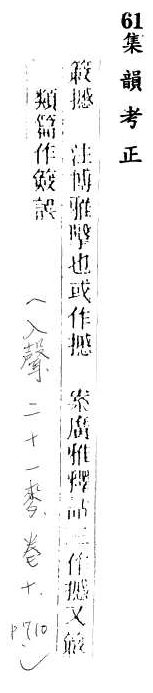 61集韻考正
𥬲撼 注博雅擊也或作撼 案廣雅釋詁三作撼又𥬲
類篇作𥬲誤
(入聲二十一麥,卷十,
P710)